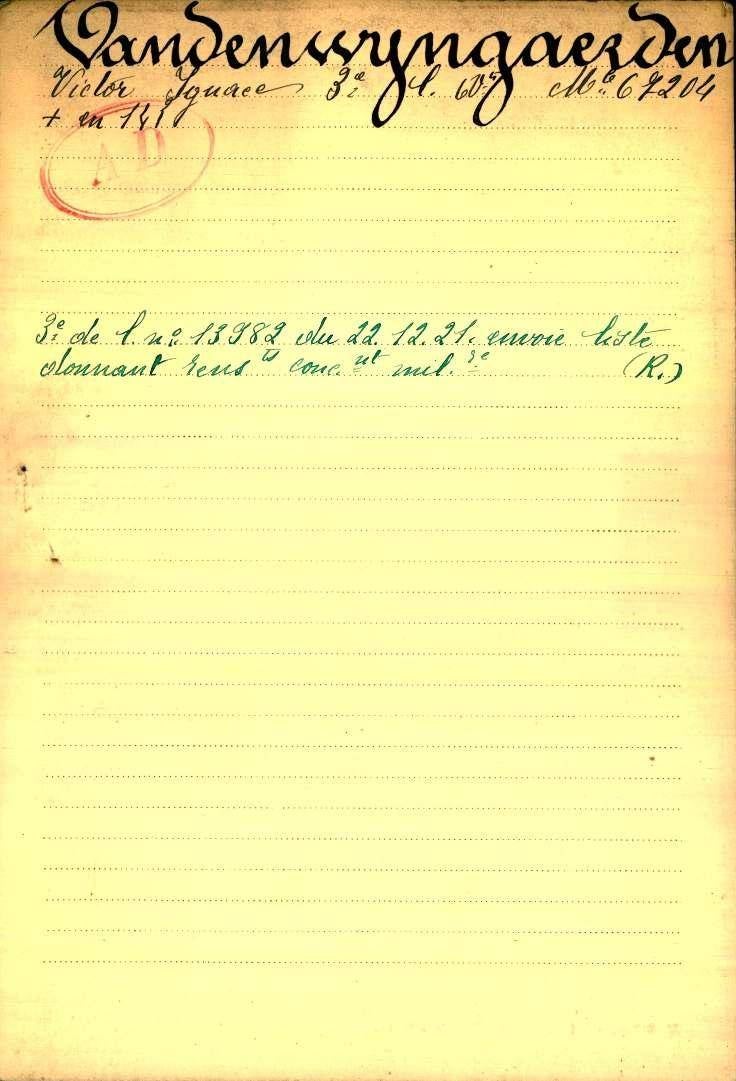 Vandenwyngaerden
Victor Ignace 3e l. Mle 67204
+ en
AD
3e de l. no 13982 du 22.12.21. envoie liste
donnant rens ts conc. nt mil. re (R.)